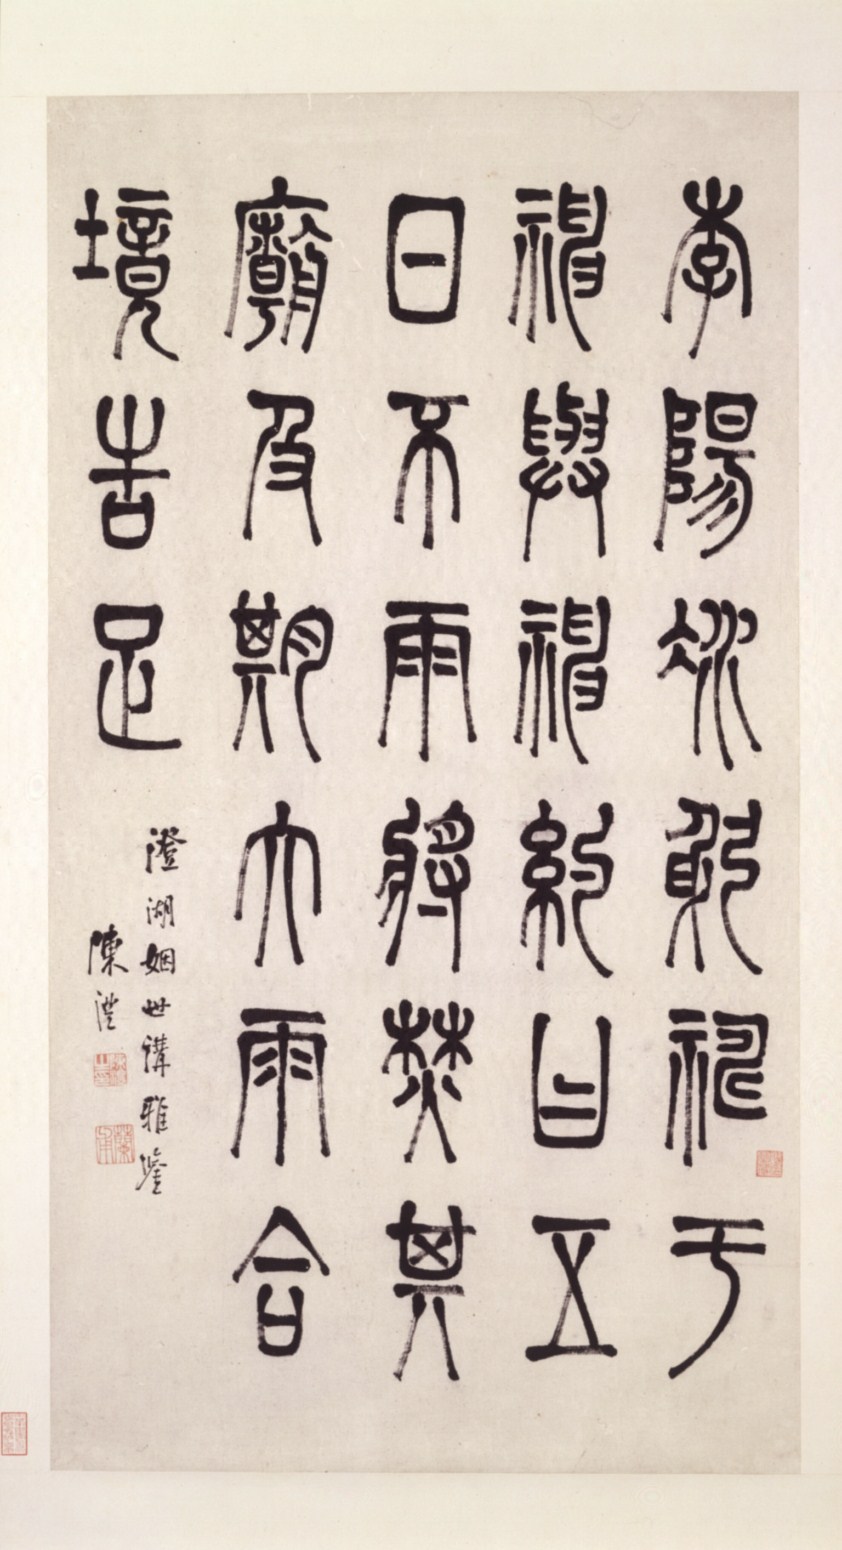 李陽冰躬祈于
神與神約曰五
日不雨將焚其
廟及期大雨合
境告足
澄湖姻世講雅鑒
陳澧
蘭甫